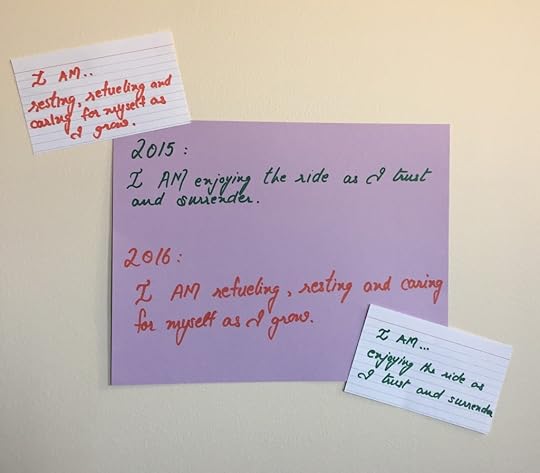 I AM..
resting, refueling and
caring for myself as
I grow.
2015:
I AM enjoying the ride as I trust
and surrender.
2016:
I AM refueling, resting and caring
for myself as I grow.
I AM...
enjoying the ride as
I trust and surrender